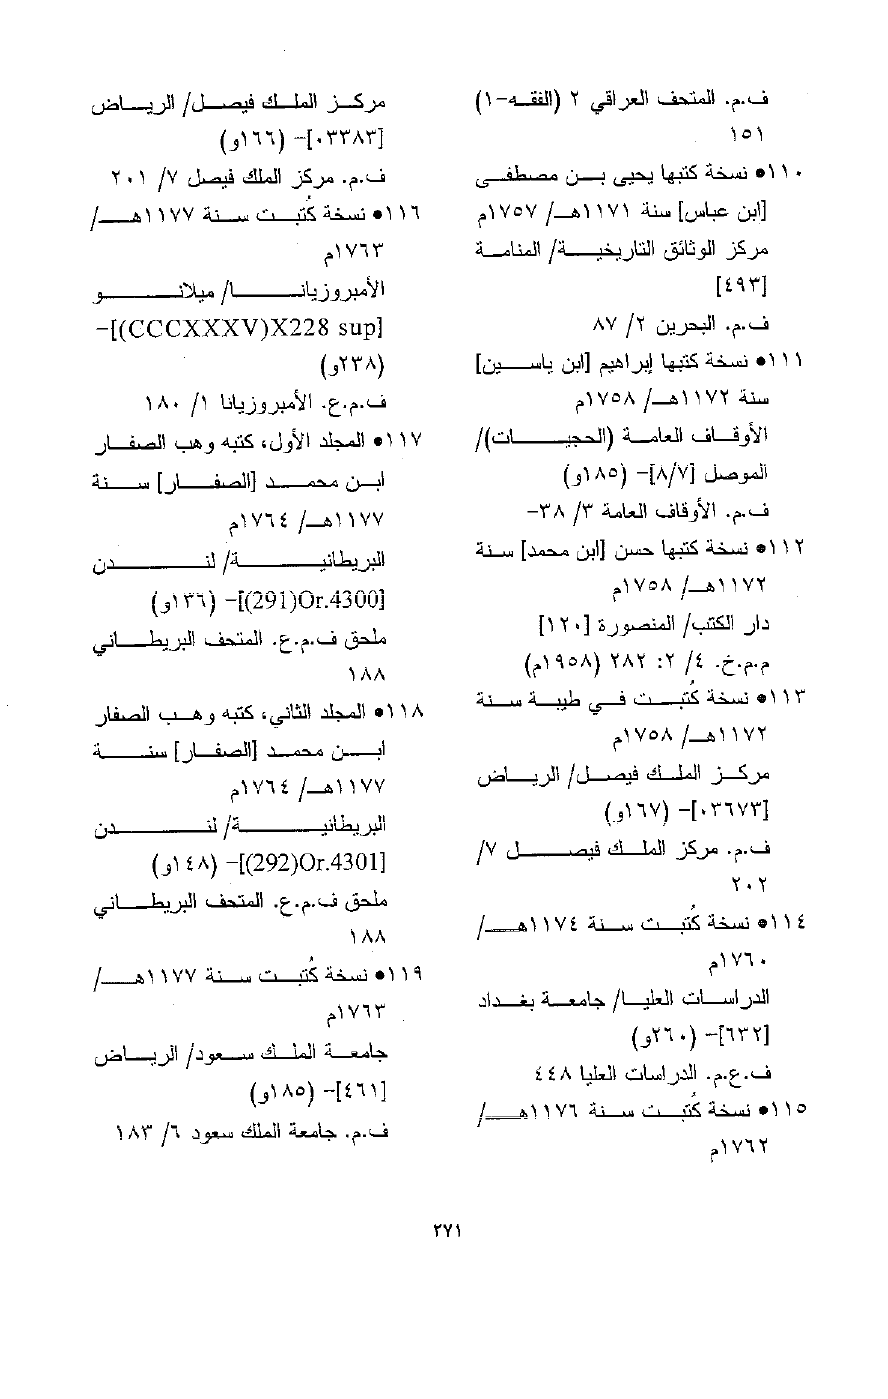 ف.م. المتحف العراقي ٢ (الفقه-١)
١٥١
١١٠• نسخة كتبها يحيى بن مصطفى
[ابن عباس] سنة ١١٧١هـ/ ١٧٥٧م
مركز الوثائق التاريخية/ المنامة
[٤٩٣]
ف.م. البحرين ٢/ ٨٧
١١١• نسخة كتبها إبراهيم [ابن ياسين]
سنة ١١٧٢هـ/ ١٧٥٨م
الأوقاف العامة (الحجيات)/
الموصل [٨/٧]- (١٨٥و)
ف.م. الأوقاف العامة ٣/ ٣٨-
١١٢• نسخة كتبها حسن [ابن محمد] سنة
١١٧٢هـ/ ١٧٥٨م
دار الكتب/ المنصورة [١٢٠]
م.م.خ. ٤/ ٢: ٢٨٢ (١٩٥٨م)
١١٣• نسخة كُتبت في طيبة سنة
١١٧٢هـ/ ١٧٥٨م
مركز الملك فيصل/ الرياض
[٠٣٦٧٣]- (١٦٧و)
ف.م. مركز الملك فيصل ٧/
٢٠٢
١١٤• نسخة كُتبت سنة ١١٧٤هـ/
١٧٦٠م
الدراسات العليا/ جامعة بغداد
[٦٣٢]- (٢٦٠و)
ف.ع.م. الدراسات العليا ٤٤٨
١١٥• نسخة كُتبت سنة ١١٧٦هـ/
١٧٦٢م
مركز الملك فيصل/ الرياض
[٠٣٣٨٣]- (١٦٦و)
ف.م. مركز الملك فيصل ٧/ ٢٠١
١١٦• نسخة كُتبت سنة ١١٧٧هـ/
١٧٦٣م
الأمبروزيانا/ ميلانو
[X228 sup(CCCXXXV)]-
(٢٣٨و)
ف.م.ع. الأمبروزيانا ١/ ١٨٠
١١٧• المجلد الأول، كتبه وهب الصفار
ابن محمد [الصفار] سنة
١١٧٧هـ/ ١٧٦٤م
البريطانية/ لندن
[Or.4300(291)]- (١٣٦و)
ملحق ف.م.ع. المتحف البريطاني
١٨٨
١١٨• المجلد الثاني، كتبه وهب الصفار
ابن محمد [الصفار] سنة
١١٧٧هـ/ ١٧٦٤م
البريطانية/ لندن
[Or.4301(292)]- (١٤٨و)
ملحق ف.م.ع. المتحف البريطاني
١٨٨
١١٩• نسخة كُتبت سنة ١١٧٧هـ/
١٧٦٣م
جامعة الملك سعود/ الرياض
[٤٦١]- (١٨٥و)
ف.م. جامعة الملك سعود ٦/ ١٨٣
٢٧١